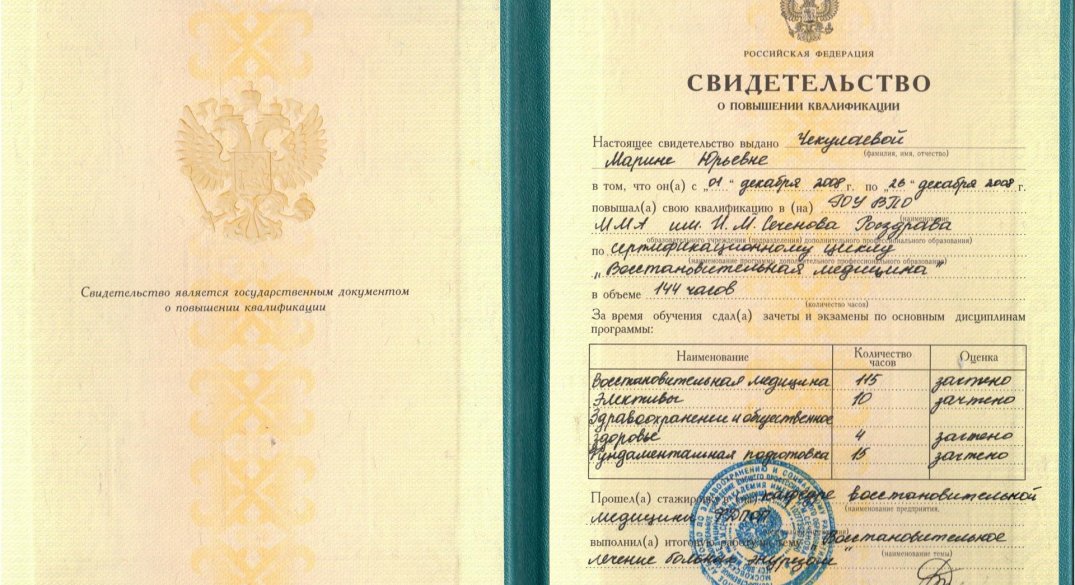 Свидетельство является государственным документом
о повышении квалификации
РОССИЙСКАЯ ФЕДЕРАЦИЯ
СВИДЕТЕЛЬСТВО
О ПОВЫШЕНИИ КВАЛИФИКАЦИИ
Настоящее свидетельство выдано Чекулаевой
(фамилия, имя, отчество)
Марине Юрьевне
в том, что он(а) с „01" декабря 2008 г. по „26" декабря 2008 г.
повышал(а) свою квалификацию в (на) ГОУ ВПО
(наименование
ММА им. И. М. Сеченова Росздрава
образовательного учреждения (подразделения) дополнительного профессионального образования)
по сертификационному циклу
(наименование программы дополнительного профессионального образования)
„Восстановительная медицина"
в объеме 144 часов
(количество часов)
За время обучения сдал(а) зачеты и экзамены по основным дисциплинам
программы:
Наименование Количество часов Оценка
Восстановительная медицина 115 зачтено
Элективы 10 зачтено
Здравоохранение и общественное
здоровье 4 зачтено
Фундаментальная подготовка 15 зачтено
Прошел(а) стажировку в (на) кафедре восстановительной
(наименование предприятия,
медицины ФППОП
выполнил(а) итоговую работу на тему Восстановительное
(наименование темы)
лечение больных